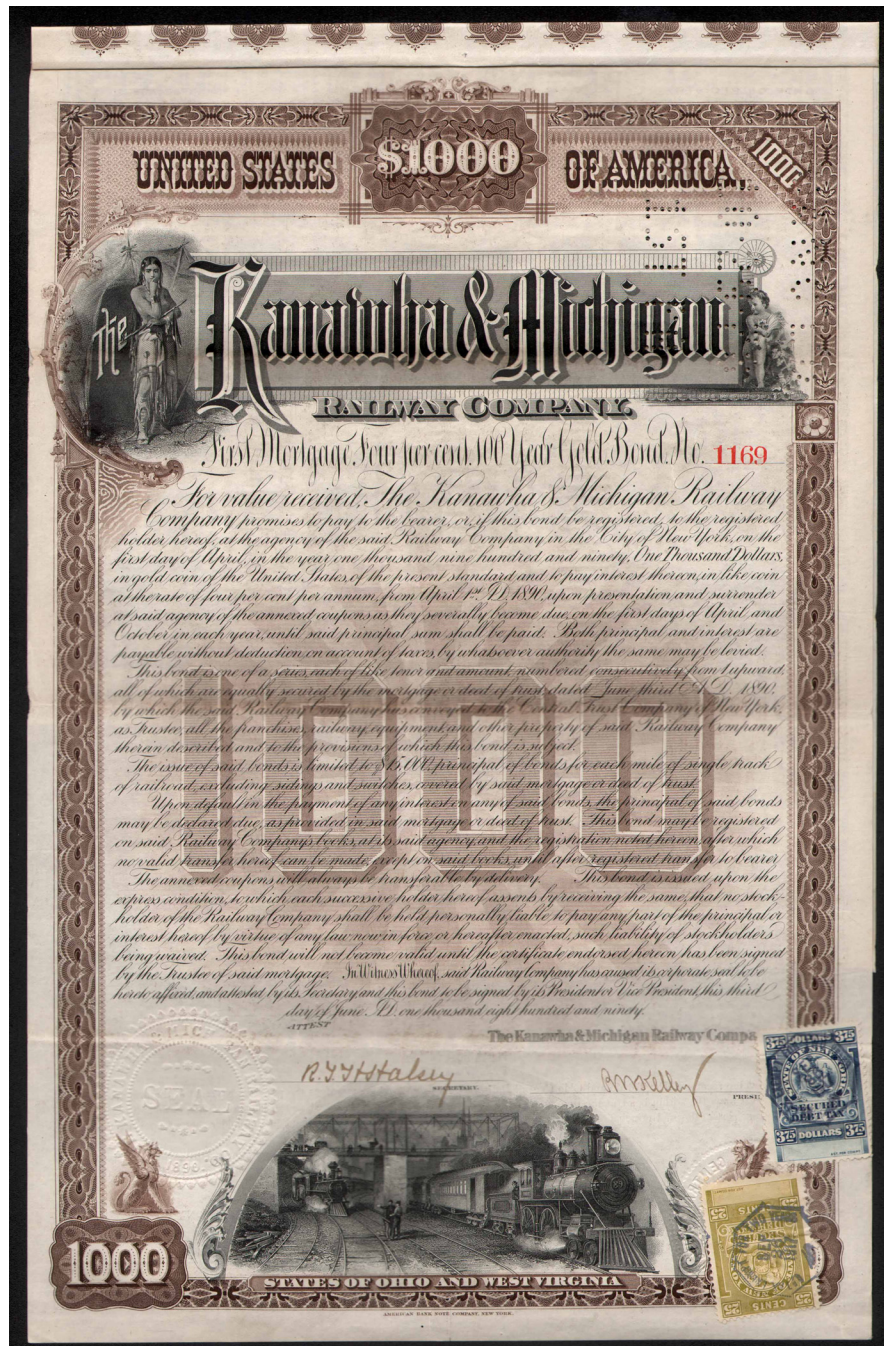 UNITED STATES $1000 OF AMERICA 1000
The Kanawha & Michigan
RAILWAY COMPANY.
First Mortgage Four per cent. 100 Year Gold Bond. No. 1169
For value received, The Kanawha & Michigan Railway
Company promises to pay to the bearer, or, if this bond be registered, to the registered
holder hereof, at the agency of the said Railway Company in the City of New York, on the
first day of April, in the year one thousand nine hundred and ninety, One Thousand Dollars,
in gold coin of the United States, of the present standard and to pay interest thereon, in like coin
at the rate of four per cent per annum, from April 1st A.D. 1890, upon presentation and surrender
at said agency of the annexed coupons as they severally become due, on the first days of April and
October in each year, until said principal sum shall be paid. Both principal and interest are
payable without deduction on account of taxes, by whatsoever authority the same may be levied.
This bond is one of a series, each of like tenor and amount, numbered consecutively from 1 upward,
all of which are equally secured by the mortgage or deed of trust dated June third A.D. 1890,
by which the said Railway Company has conveyed to the Central Trust Company of New York,
as Trustee, all the franchises, railway, equipment, and other property of said Railway Company
therein described and to the provisions of which this bond is subject.
The issue of said bonds is limited to $15,000, principal of bonds for each mile of single track
of railroad, excluding sidings and switches, covered by said mortgage or deed of trust.
Upon default in the payment of any interest on any of said bonds, the principal of said bonds
may be declared due, as provided in said mortgage or deed of trust. This bond may be registered
on said Railway Company's books, at its said agency, and the registration noted hereon, after which
no valid transfer hereof can be made, except on said books, until after registered transfer to bearer.
The annexed coupons will always be transferable by delivery. This bond is issued upon the
express condition, to which each successive holder hereof assents by receiving the same, that no stock-
holder of the Railway Company shall be held personally liable to pay any part of the principal or
interest hereof by virtue of any law now in force or hereafter enacted, such liability of stockholders
being waived. This bond will not become valid until the certificate endorsed hereon has been signed
by the Trustee of said mortgage. In Witness Whereof, said Railway Company has caused its corporate seal to be
hereto affixed, and attested by its Secretary and this bond to be signed by its President or Vice President, this third
day of June A.D. one thousand eight hundred and ninety.
ATTEST
The Kanawha & Michigan Railway Compa
R.T.H. Halsey
SECRETARY.
PRESI
SEAL
375 DOLLARS 375
STATE OF NEW YORK
SECURED
DEBT TAX
375 DOLLARS 375
25 CENTS 25
1000
STATES OF OHIO AND WEST VIRGINIA
25 CENTS 25
AMERICAN BANK NOTE COMPANY, NEW YORK.